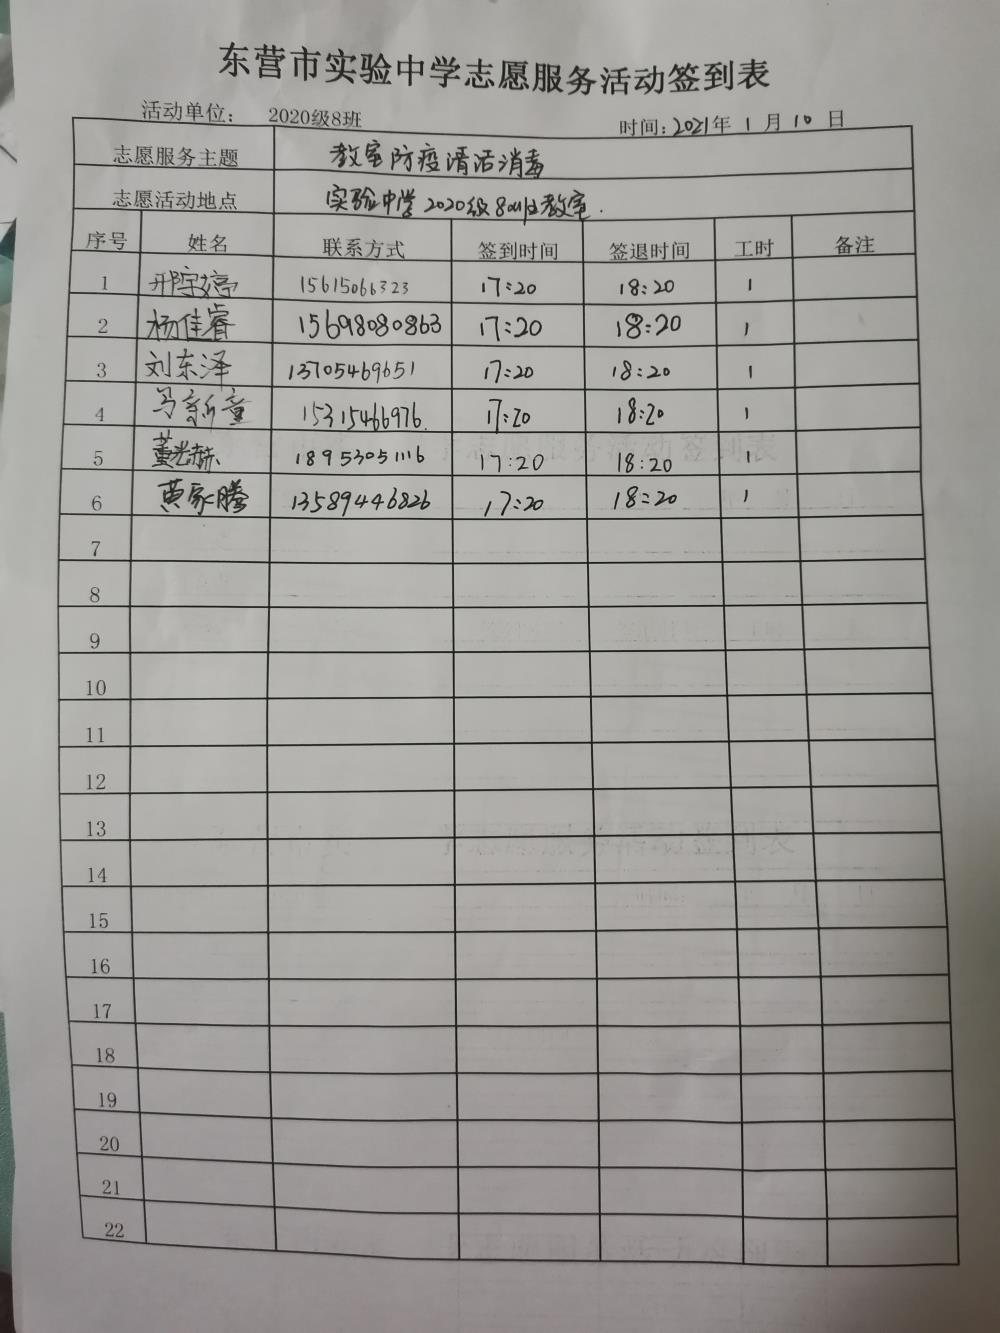 东营市实验中学志愿服务活动签到表
活动单位： 2020级8班 时间：2021年 1 月 10 日
志愿服务主题 教室防疫清洁消毒
志愿活动地点 实验中学2020级8班教室.
序号 姓名 联系方式 签到时间 签退时间 工时 备注
1 邢宇婷 15615066323 17:20 18:20 1
2 杨佳睿 15698080863 17:20 18:20 1
3 刘东泽 13705469651 17:20 18:20 1
4 马新童 15315466976. 17:20 18:20 1
5 董光赫 18953051116 17:20 18:20 1
6 黄家腾 13589446826 17:20 18:20 1
7
8
9
10
11
12
13
14
15
16
17
18
19
20
21
22